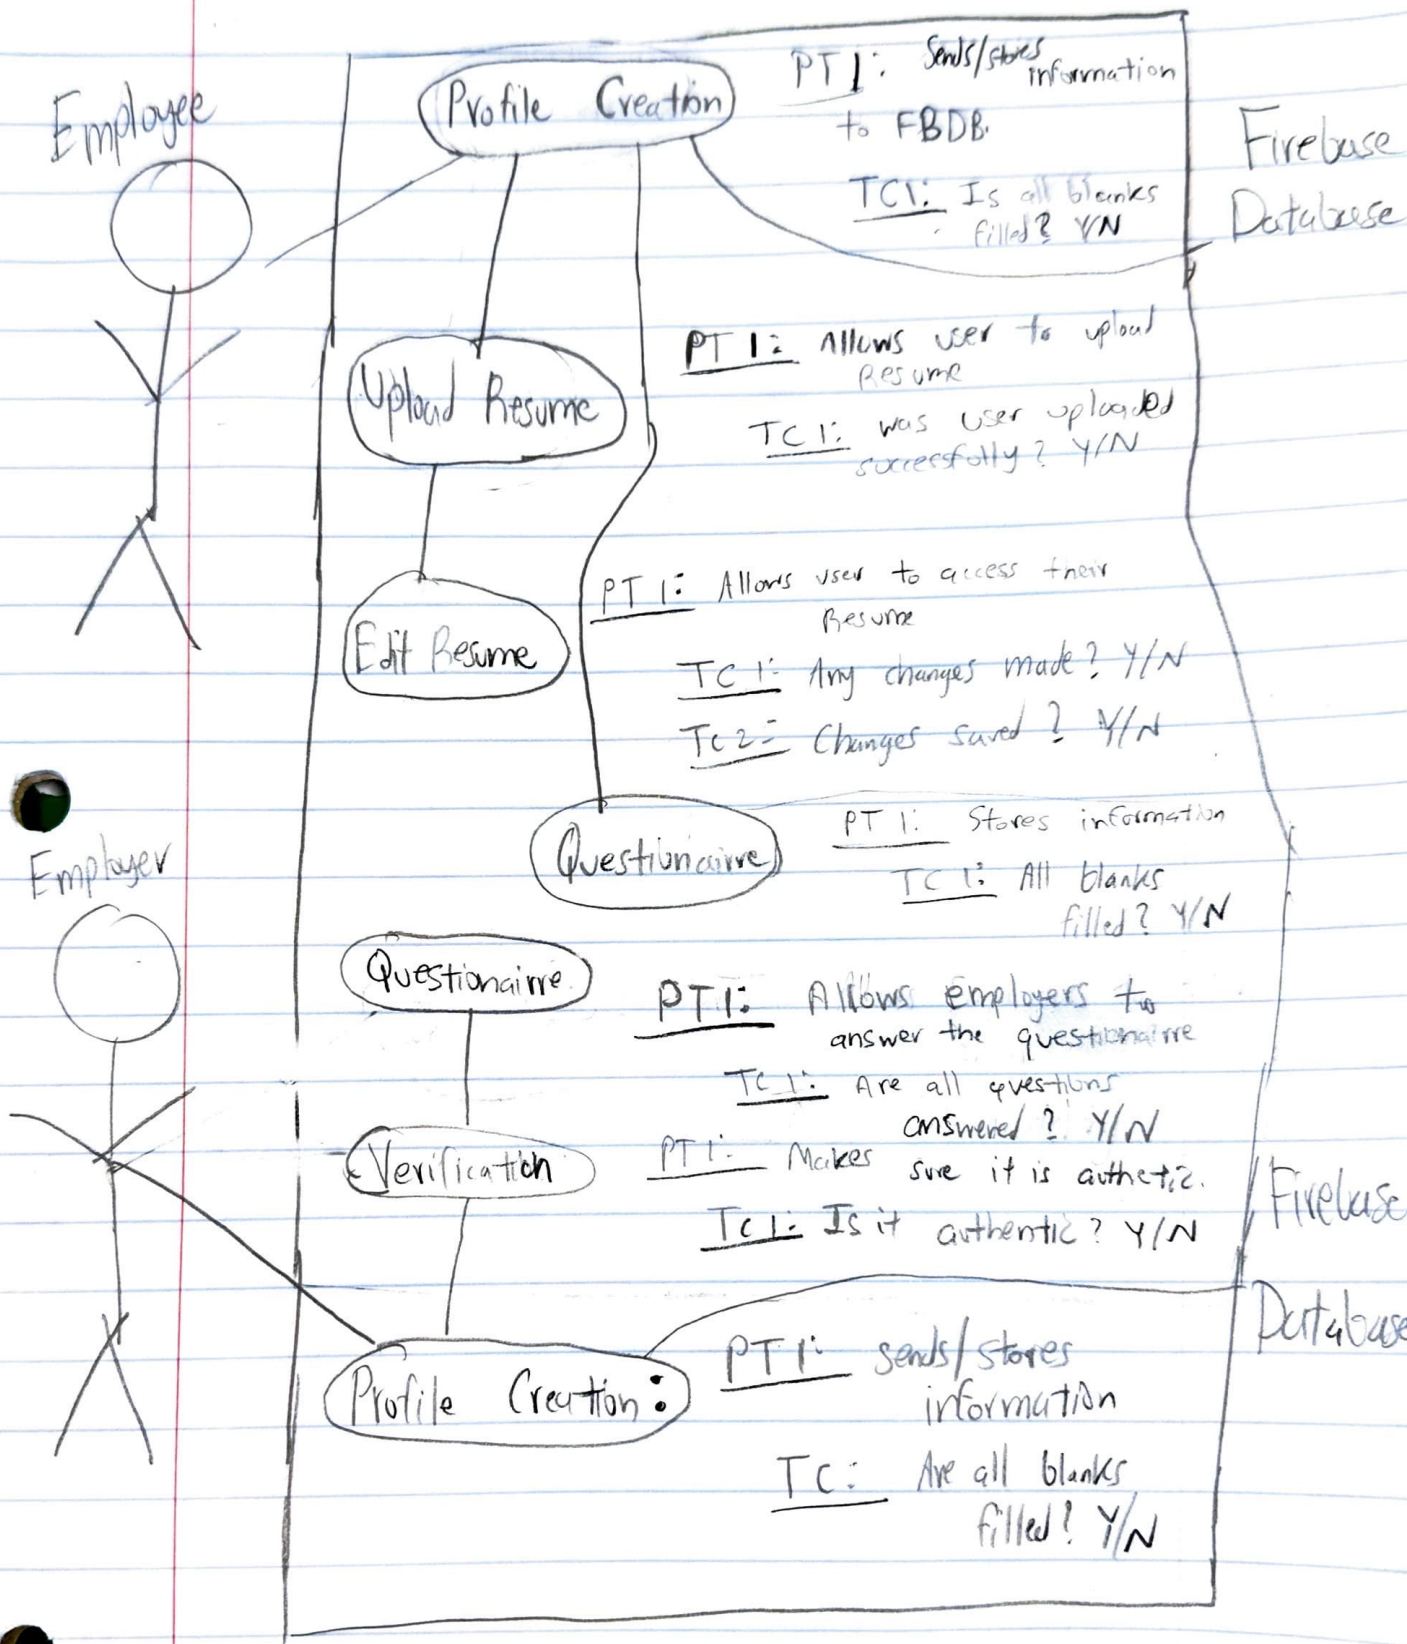 Employee
Profile Creation
PT 1: Sends/stores
information
to FBDB.
TC1: Is all blanks
filled? Y/N
Firebase
Database
Upload Resume
PT 1: Allows user to upload
Resume
TC 1: was user uploaded
successfully? Y/N
Edit Resume
PT 1: Allows user to access their
Resume
TC 1: Any changes made? Y/N
TC 2: Changes saved? Y/N
Questionairre
PT 1: Stores information
TC 1: All blanks
filled? Y/N
Employer
Questionairre
PT1: Allows employers to
answer the questionairre
TC 1: Are all questions
answered? Y/N
Verification
PT1: Makes sure it is authetic.
TC1: Is it authentic? Y/N
Firebase
Database
Profile Creation:
PT1: sends/stores
information
TC: Are all blanks
filled? Y/N